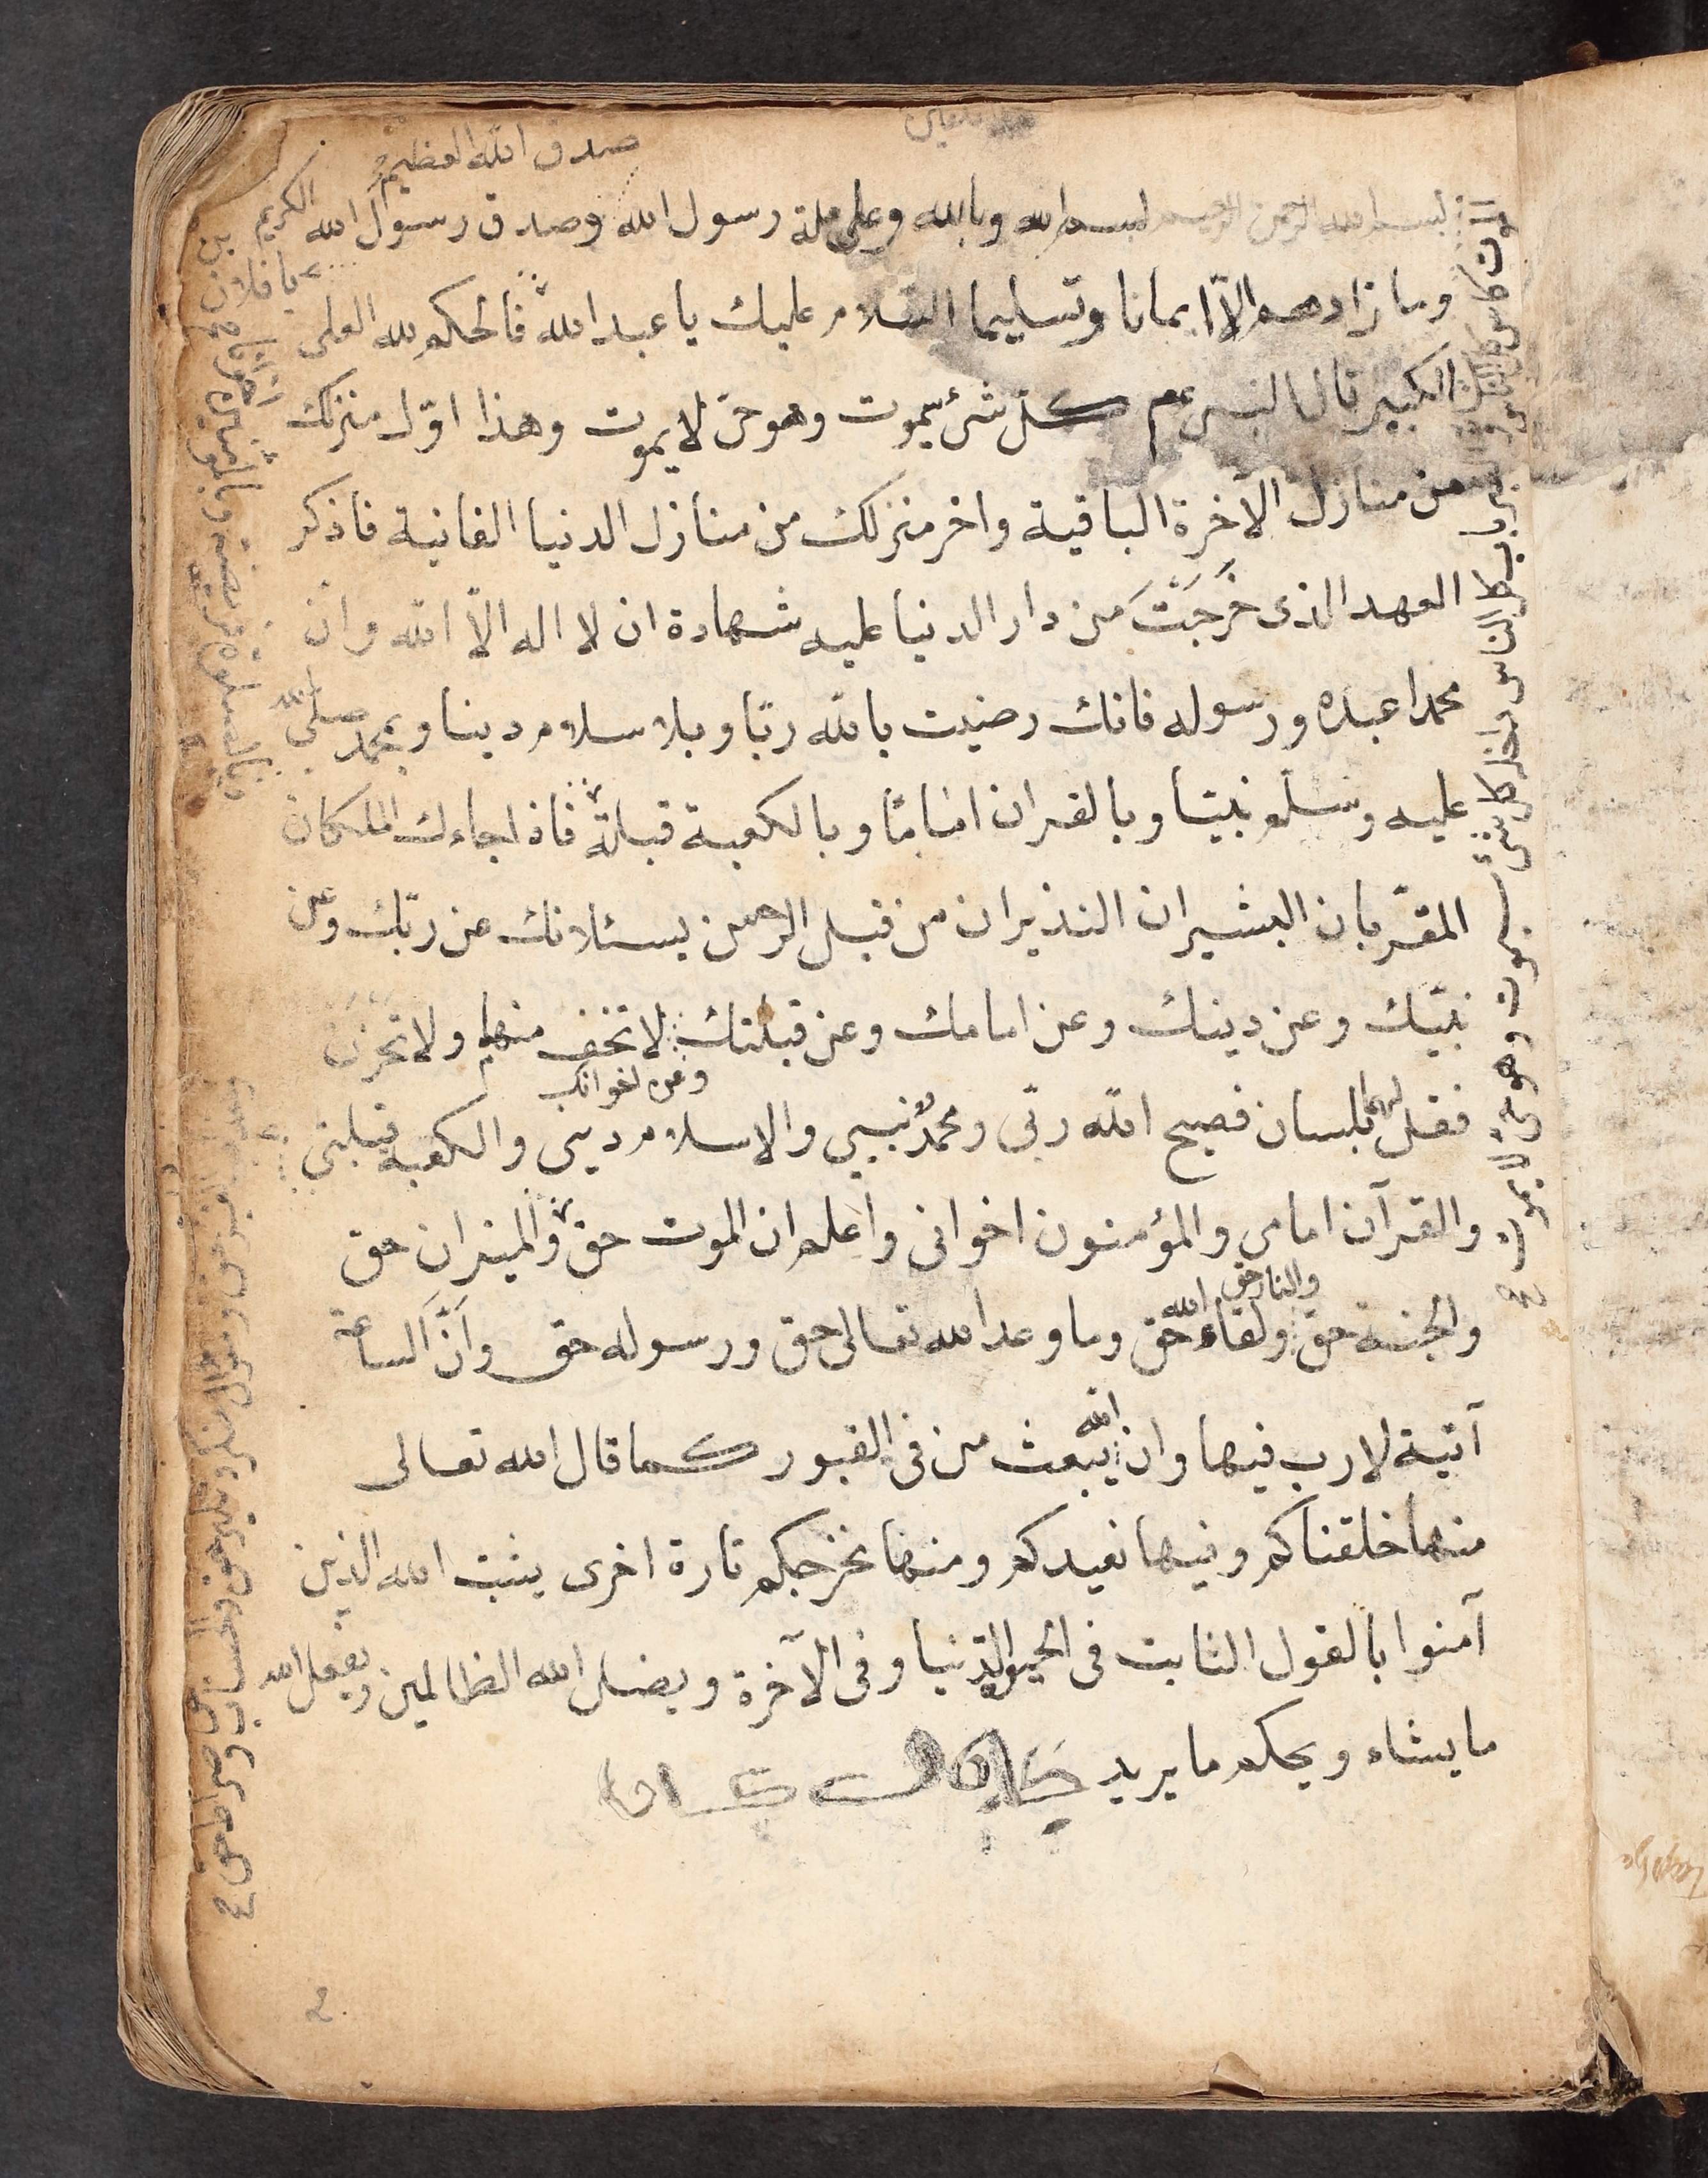 صدق الله العظيم
بسم الله الرحمن الرحيم بسم الله وبالله وعلى ملة رسول الله وصدق رسول الله الكريم
وما زادهم الّا ايمانا وتسليما السّلام عليك يا عبد الله فالحكم لله العلى
الكبير قال النبى عم كلّ شئ يموت وهو حىّ لا يموت وهذا اوّل منزلك
من منازل الآخرة الباقية واخر منزلك من منازل الدنيا الفانية فاذكر
العهد الذى خَرَجْتَ من دار الدنيا عليه شهادة ان لا اله الّا الله وانّ
محمدا عبده ورسوله فانك رضيت بالله ربّا وبلاسلام دينا وبمحمد صلى الله
عليه وسلّم نبيّا وبالقران امامًا وبالكعبة قبلة فاذا جاءك الملكان
المقرّبان البشيران النذيران من قبل الرحمن يسئلانك عن ربّك وعن
نبيّك وعن دينك وعن امامك وعن قبلتك لا تخف منهما ولا تحزن
وعن اخوانك
فقل لهما بلسان فصيح الله ربّى ومحمّدٌ نبيى والاسلام دينى والكعبة قبلتى
والقرآن امامى والمؤمنون اخوانى واعلم ان الموت حق والميزان حق
والنار حق
والجنة حق ولقاء الله حّق وما وعد الله تعالى حق ورسوله حق وَاَنَّ الساعة
آتية لا رب فيها وان الله يبعث من فى القبور كما قال الله تعالى
منها خلقناكم وفيها نعيدكم ومنها نخرجكم تارة اخرى يثبت الله الذين
آمنوا بالقول الثابت فى الحيوة الدّنيا وفى الآخرة ويضل الله الظالمين ويفعل الله
ما يشاء ويحكم ما يريد
يا فلان بن
الموت كاس كل الناس
باب كل الناس داخل كل شئ
يموت وهو حى لا يموت
القبر حق وسؤال منكر ونكير حق والحساب حق وصراط حق
2